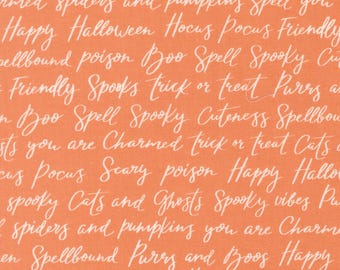 armed spiders and pumpkins Spell you
Happy Halloween Hocus Pocus Friendly
Spellbound poison Boo Spell Spooky Cut
Friendly Spooks trick or treat Purrs a
on Boo Spell Spooky Cuteness Spellbou
sts you are Charmed trick or treat Cats
cus Pocus Scary poison Happy Hallo
spooky Cats and Ghosts Spooky vibes Pu
d spiders and pumpkins you are Charm
een Spellbound Purrs and Boos Happy